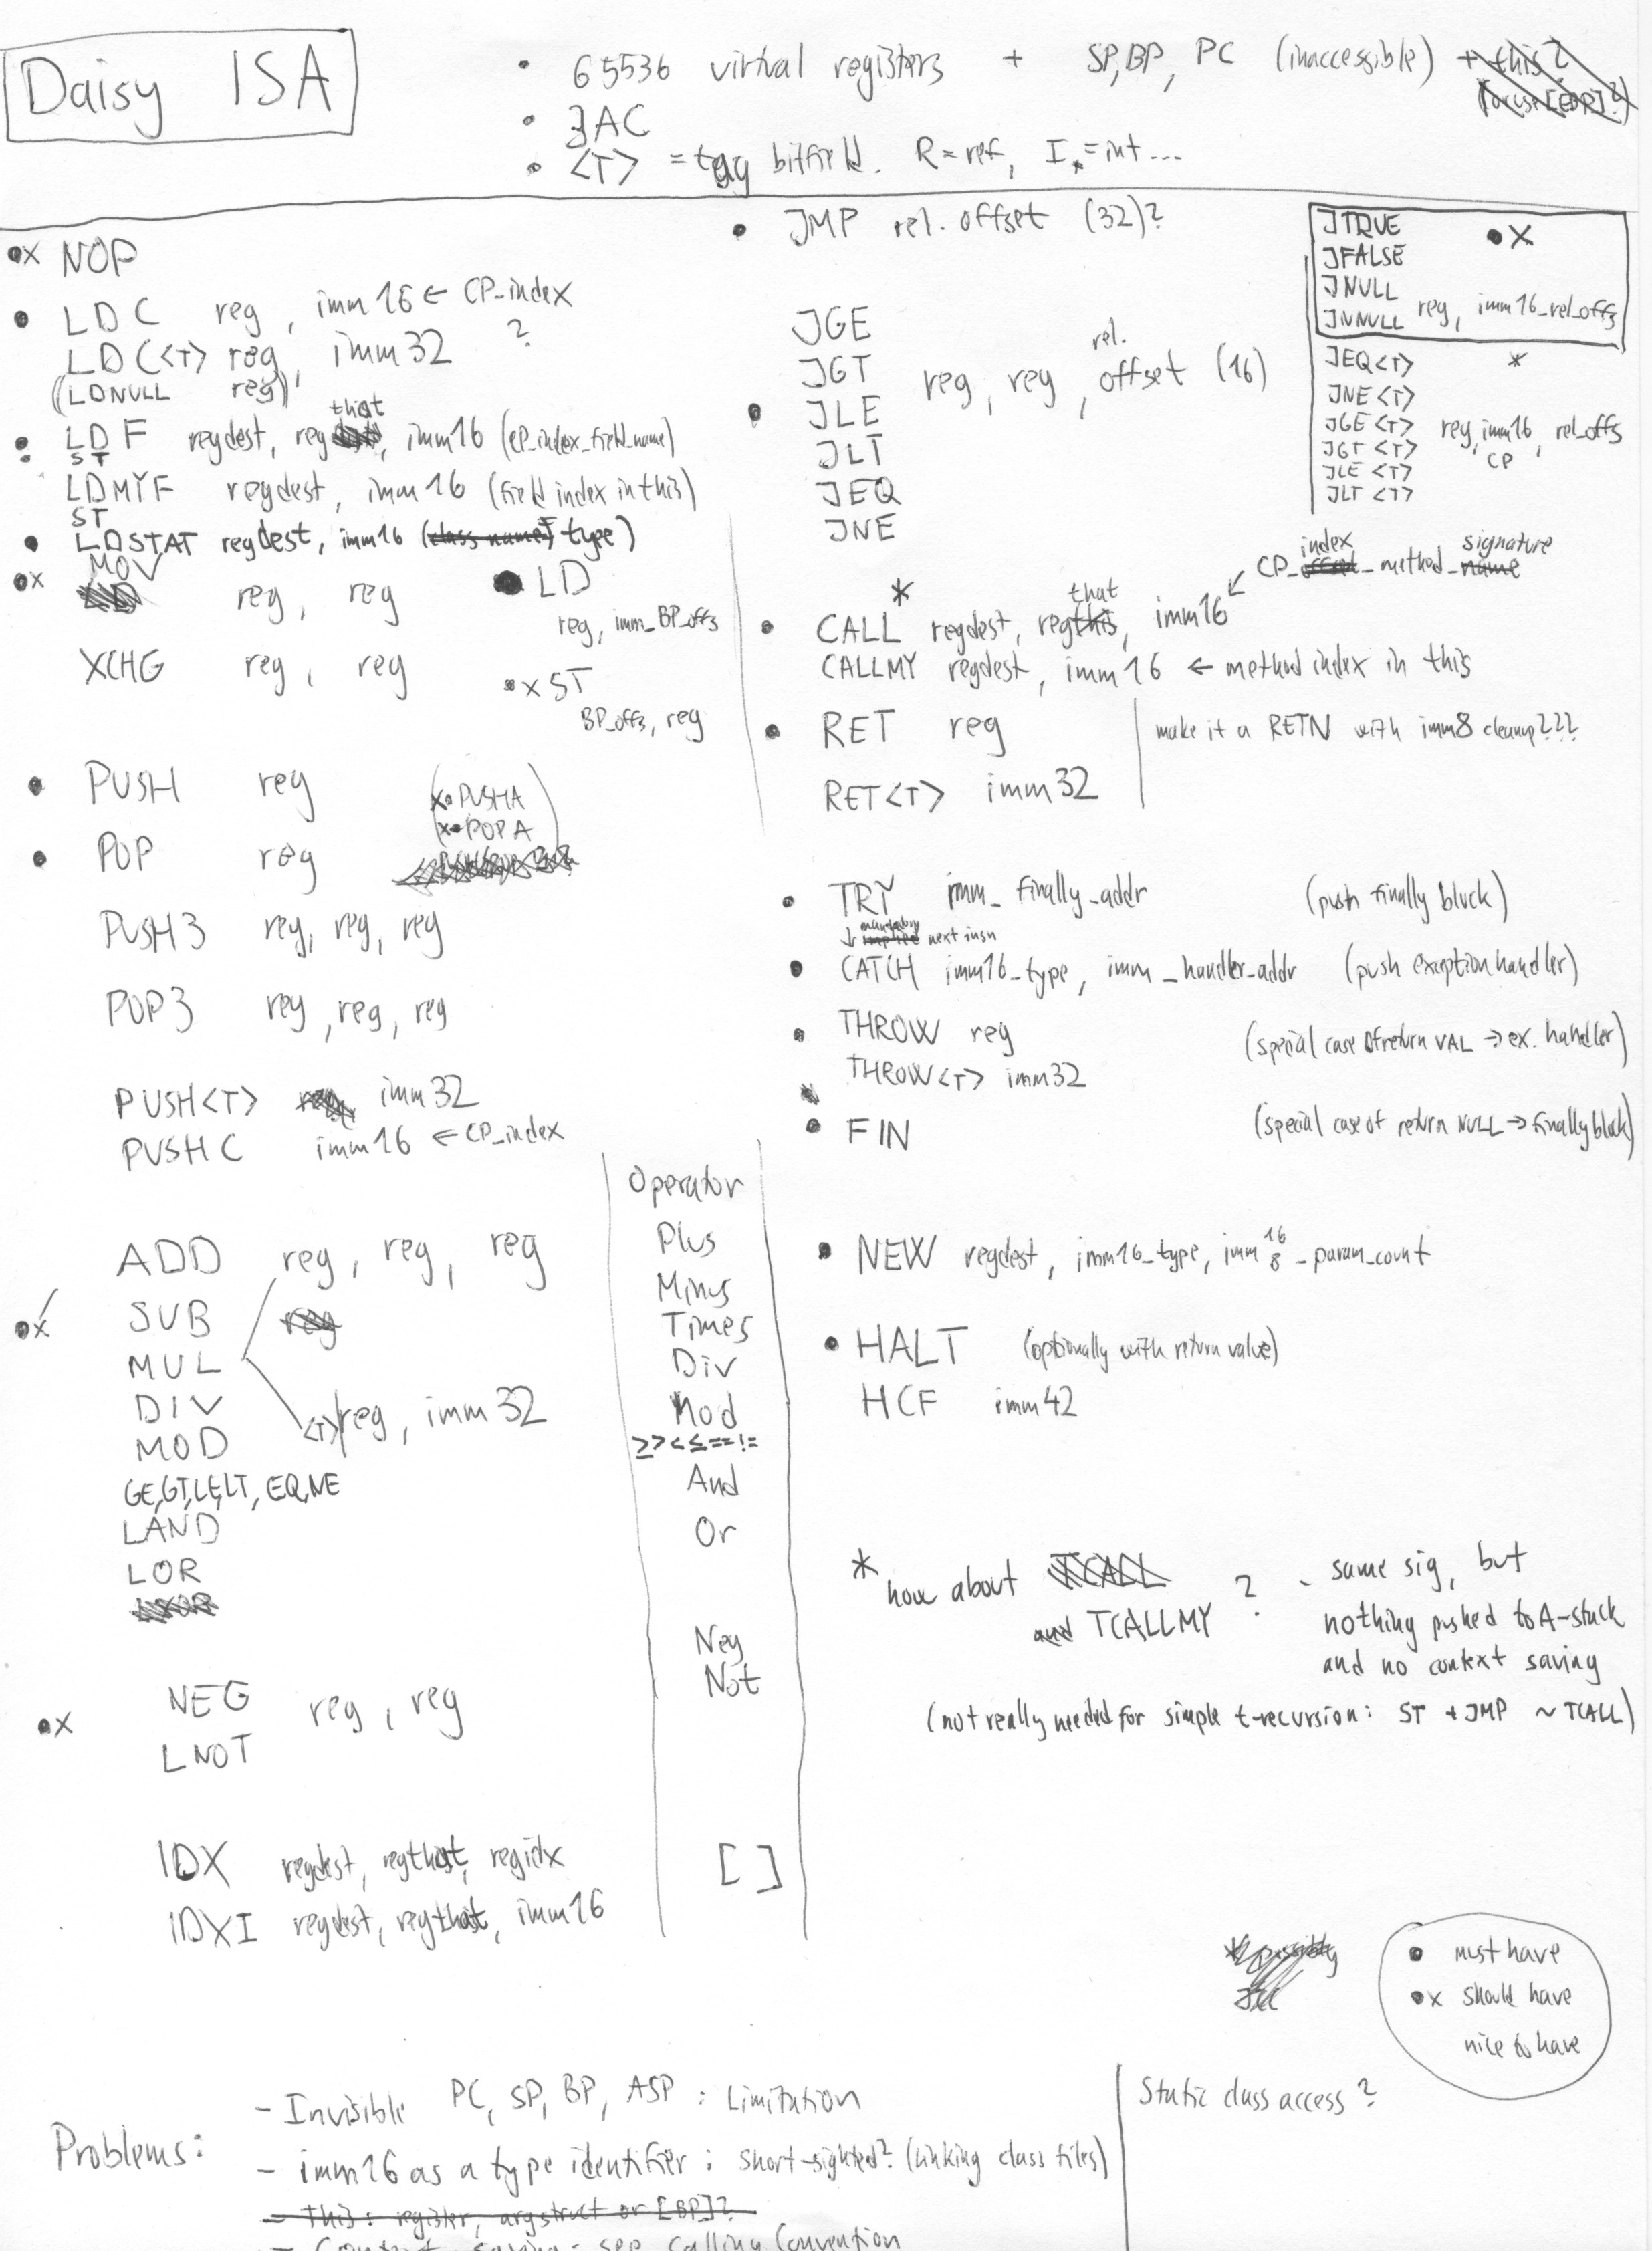 Daisy ISA
• 65536 virtual registers + SP, BP, PC (inaccessible) + this?
• 3AC
• <T> = tag bitfield. R=ref, I*=int...
•x NOP
• LDC reg, imm16 ← CP_index
LDC<T> reg, imm32 ?
(LDNULL reg)
• LDF regdest, regthat, imm16 (CP_index_field_name)
• ST
LDMYF regdest, imm16 (field index in this)
ST
• LDSTAT regdest, imm16 (class name, type)
•x MOV reg, reg
XCHG reg, reg
• LD
reg, imm_BP_offs
•x ST
BP_offs, reg
• PUSH reg
• POP reg
(x• PUSHA
x• POPA)
PUSH3 reg, reg, reg
POP3 reg, reg, reg
PUSH<T> reg, imm32
PUSHC imm16 ← CP_index
•x ADD reg, reg, reg
SUB reg
MUL
DIV <T> reg, imm32
MOD
GE,GT,LE,LT, EQ,NE
LAND
LOR
•x NEG reg, reg
LNOT
IDX regdest, regthat, regidx
IDXI regdest, regthat, imm16
Operator
Plus
Minus
Times
Div
Mod
≥><≤==!=
And
Or
Neg
Not
[ ]
• JMP rel. offset (32)?
JGE
JGT
• JLE reg, reg, rel. offset (16)
JLT
JEQ
JNE
JTRUE •x
JFALSE
JNULL
JNNULL reg, imm16_rel_offs
JEQ<T> *
JNE<T>
JGE<T> reg, imm16, rel_offs
JGT<T> CP
JLE<T>
JLT<T>
CP_index_method_signature
offset name
*
• CALL regdest, regthat, imm16
CALLMY regdest, imm16 ← method index in this
• RET reg
RET<T> imm32
make it a RETN with imm8 cleanup???
• TRY imm_finally_addr (push finally block)
↓ mandatory implied next insn
• CATCH imm16_type, imm_handler_addr (push exception handler)
• THROW reg (special case of return VAL → ex. handler)
THROW<T> imm32
• FIN (special case of return NULL → finally block)
• NEW regdest, imm16_type, imm 16 8 _param_count
• HALT (optionally with return value)
HCF imm42
* how about TCALL
and TCALLMY ?
- same sig, but
nothing pushed to A-stack
and no context saving
(not really needed for simple t-recursion: ST + JMP ~ TCALL)
• must have
•x should have
nice to have
Problems:
- Invisible PC, SP, BP, ASP : Limitation
- imm16 as a type identifier : short-sighted? (linking class files)
- This : register, argstruct or [BP]?
- Context saving : see Calling Convention
Static class access?